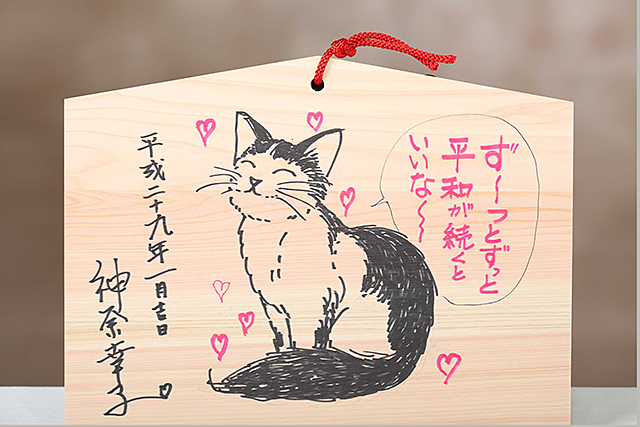 ず〜っとずっと
平和が続くと
いいな〜〜
平成二十九年一月吉日
神奈幸子